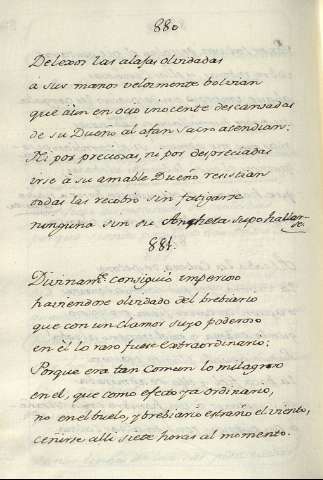 880
De lexos las alajas olvidadas
á sus manos velozmente bolvian
que àun en ocio inocente descansadas
de su Dueño al afan sacro atendian:
Ni por preciosas, ni por despreciadas
irse à su amable Dueño resistian
todas las recobró sin fatigarse
ninguna sin su Angheta supo hallarse.
881.
Divinam.te consiguió imperioso
haviendose olvidado del brebiario
que con un clamor suyo poderoso
en él lo raro fuese extraordinario:
Porque era tan comun lo milagroso
en el, que como efecto ya ordinario,
no en el buelo, y brebiario estraño el viento,
ceñirse alli siete horas al momento.